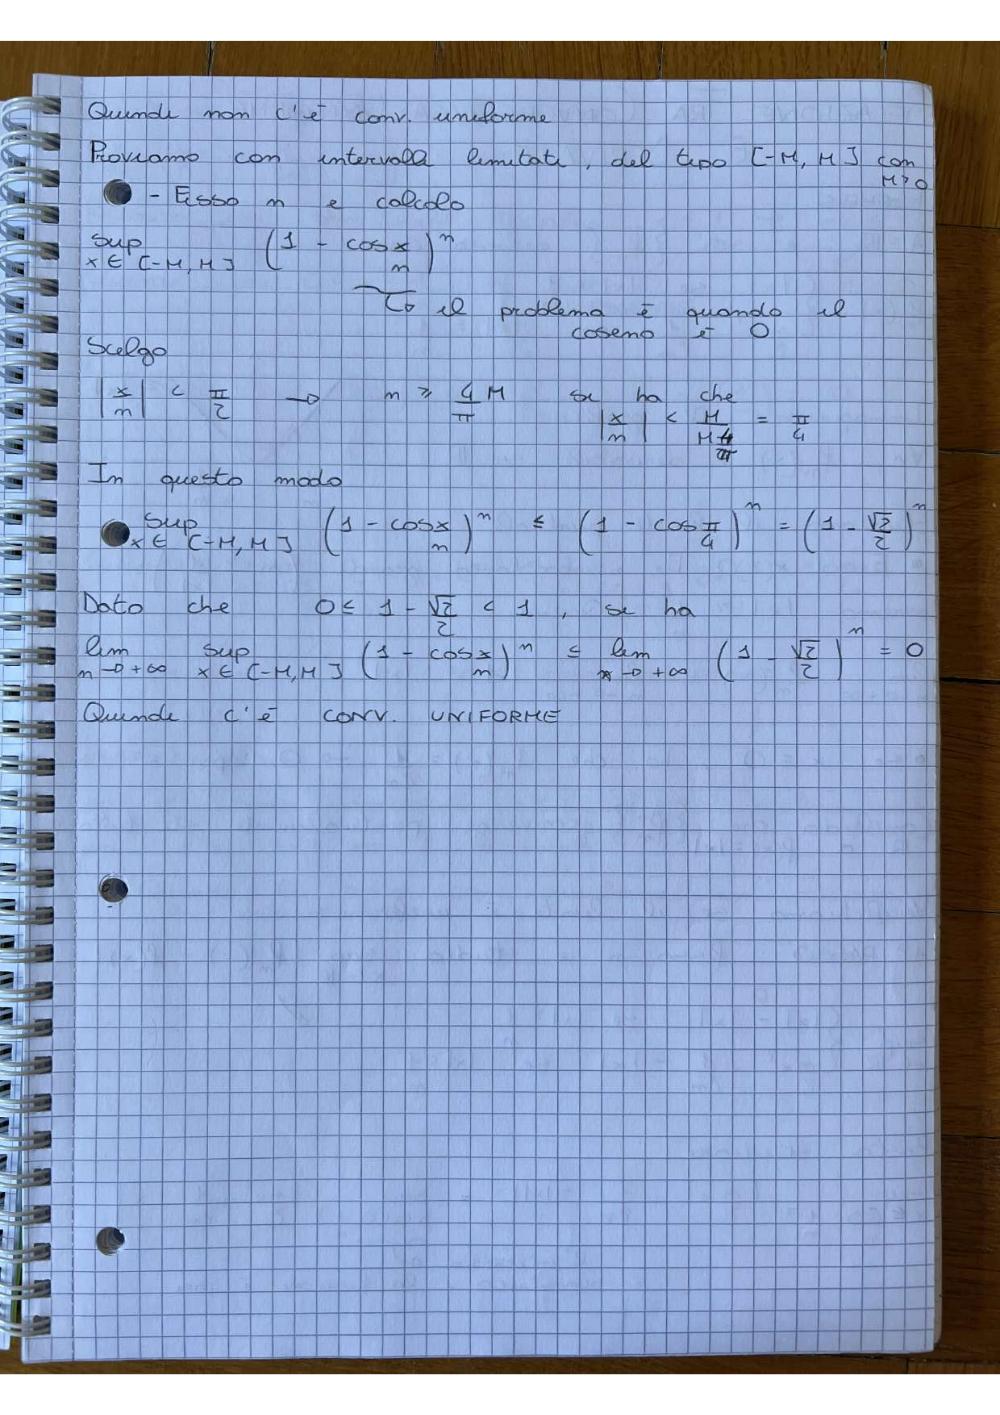 Quindi non c'è conv. uniforme
Proviamo con intervalli limitati, del tipo [-M, M] con M>0
- Fisso n e calcolo
sup x∈[-M, M] (1 - cos x/n)^n
↳ il problema è quando il
coseno è 0
Scelgo
|x/n| < π/2 → n ≥ 4/π M si ha che
|x/n| < M/(M 4/π) = π/4
In questo modo
sup x∈[-M, M] (1 - cos x/n)^n ≤ (1 - cos π/4)^n = (1 - √2/2)^n
Dato che 0 ≤ 1 - √2/2 < 1, si ha
lim n→+∞ sup x∈[-M, M] (1 - cos x/n)^n ≤ lim n→+∞ (1 - √2/2)^n = 0
Quindi c'è CONV. UNIFORME